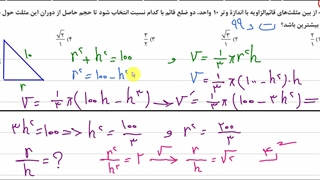 از بین مثلث‌های قائم‌الزاویه با اندازهٔ وتر ۱۰ واحد، دو ضلع قائم با کدام نسبت انتخاب شود تا حجم حاصل از دوران این مثلث حول
بیشترین باشد؟ ت ر ۹۹
10 r h
r² + h² = 100
r² = 100 - h²
V = 1/3 π r² h
V = 1/3 π (100 - h²). h
V = 1/3 π (100h - h³) → V' = 1/3 π (100 - 3h²) = 0
3h² = 100 => h² = 100/3 , r² = 200/3
r/h = ? r²/h² = 2 → r/h = √2